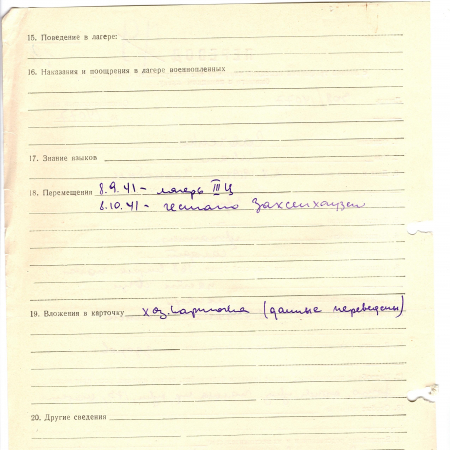 15. Поведение в лагере:
16. Наказания и поощрения в лагере военнопленных
17. Знание языков
18. Перемещения 8.9.41 - лагерь III Ц
8.10.41 - гестапо Заксенхаузен
19. Вложения в карточку хоз. карточка (данные переведены)
20. Другие сведения